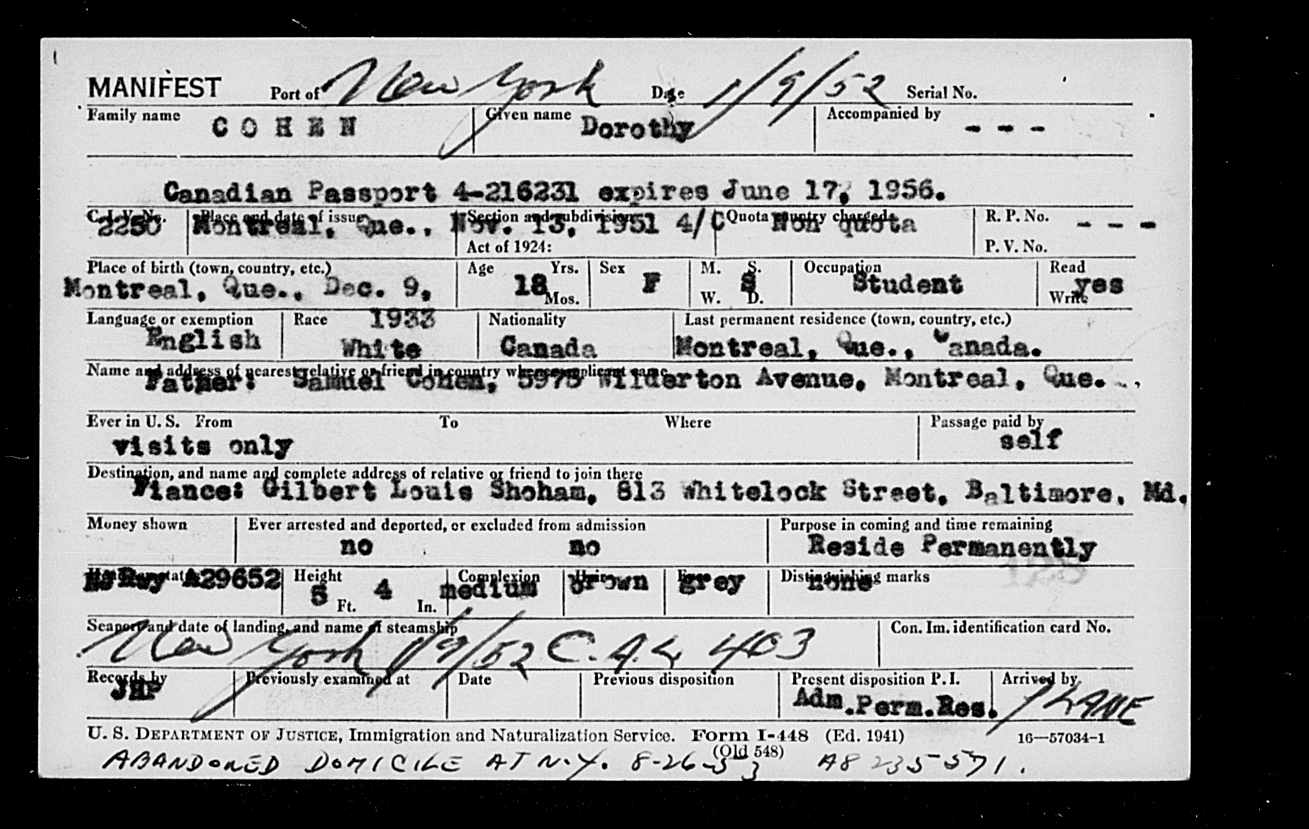 MANIFEST Port of New York Date 1/9/52 Serial No.
Family name COHEN Given name Dorothy Accompanied by - - -
Canadian Passport 4-216231 expires June 17, 1956.
C.I.V. No. Place and date of issue Section and subdivision Quota country charged R. P. No. - - -
2250 Montreal, Que., Nov. 13, 1951 4/C Non quota
Act of 1924: P. V. No.
Place of birth (town, country, etc.) Age Yrs. Sex M. S. Occupation Read
Montreal, Que., Dec. 9, 18 Mos. F S W. D. Student Write yes
Language or exemption Race 1933 Nationality Last permanent residence (town, country, etc.)
English White Canada Montreal, Que., Canada.
Name and address of nearest relative or friend in country whence applicant came
Father: Samuel Cohen, 5975 Wilderton Avenue, Montreal, Que.
Ever in U. S. From To Where Passage paid by
visits only self
Destination, and name and complete address of relative or friend to join there
Fiance: Gilbert Louis Shoham, 813 Whitelock Street, Baltimore, Md.
Money shown Ever arrested and deported, or excluded from admission Purpose in coming and time remaining
no no Reside Permanently
A29652 Height Complexion Distinguishing marks 128
5 Ft. 4 In. medium brown grey none
Seaport and date of landing, and name of steamship Con. Im. identification card No.
New York 1/9/52 C.A.L. 403
Records by Previously examined at Date Previous disposition Present disposition P. I. Arrived by
JHP Adm.Perm.Res. PLANE
U. S. DEPARTMENT OF JUSTICE, Immigration and Naturalization Service. Form I-448 (Ed. 1941) 16—57034-1
(Old 548)
ABANDONED DOMICILE AT N.Y. 8-26-53 A8 235 571.